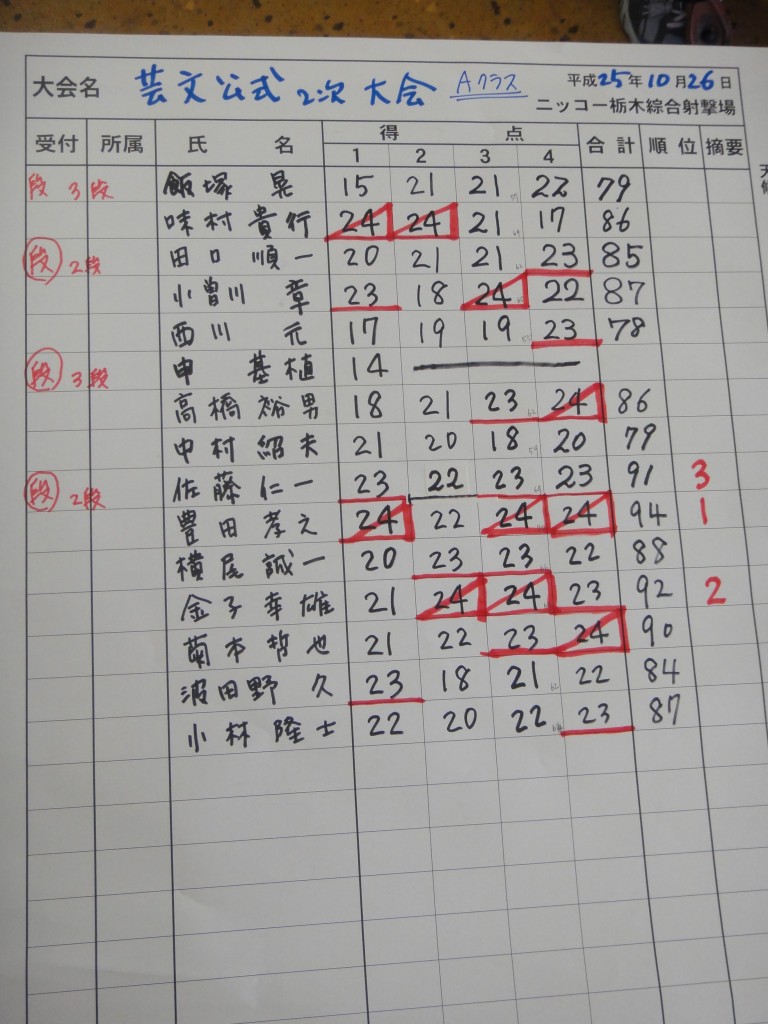 大会名 芸文公式 2次 大会 Aクラス 平成25年10月26日
ニッコー栃木綜合射撃場
受付 所属 氏 名 得 点 合計 順位 摘要
1 2 3 4
段 3段 飯塚 晃 15 21 21 22 79
味村貴行 24 24 21 17 86
段 2段 田口順一 20 21 21 23 85
小曽川 章 23 18 24 22 87
西川 元 17 19 19 23 78
段 3段 申 基植 14
高橋裕男 18 21 23 24 86
中村紹夫 21 20 18 20 79
段 2段 佐藤仁一 23 22 23 23 91 3
豊田孝之 24 22 24 24 94 1
横尾誠一 20 23 23 22 88
金子幸雄 21 24 24 23 92 2
菊本哲也 21 22 23 24 90
波田野 久 23 18 21 22 84
小林隆士 22 20 22 23 87